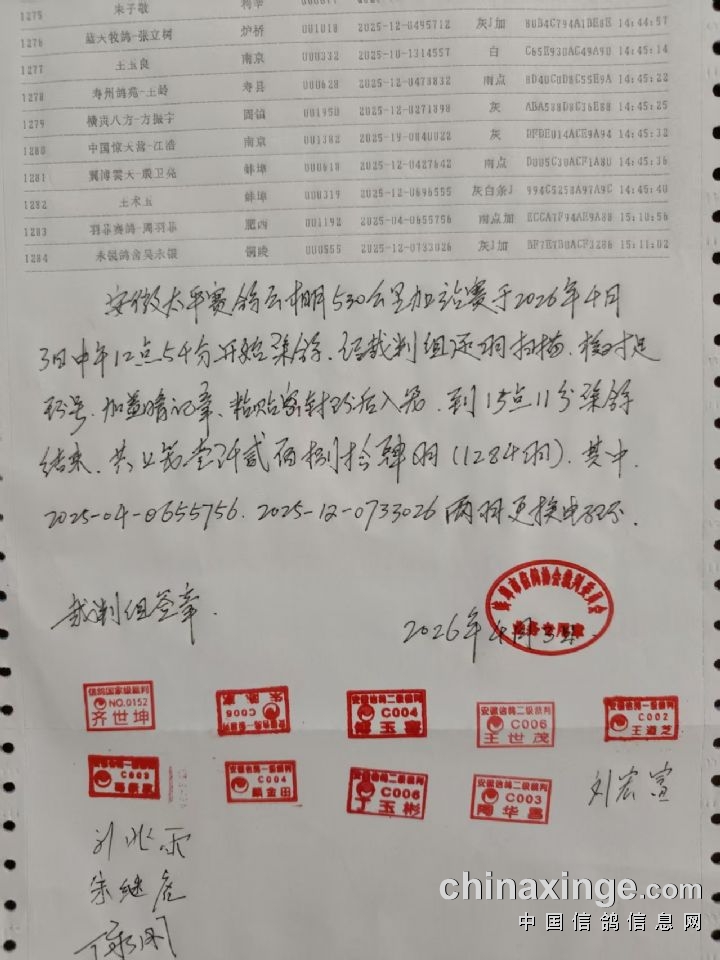 1275 朱子敬 利辛
1276 蓝天牧鸽-张立树 炉桥 001018 2025-12-0495712 灰J加 14:44:57
1277 王玉良 南京 000332 2025-10-1314557 白 C65E930AC49A90 14:45:14
1278 寿州鸽苑-王岭 寿县 000628 2025-12-0478832 南点 14:45:22
1279 横贡八方-方振宇 固镇 001950 2025-12-0271898 灰 14:45:25
1280 中国惊天营-江浩 南京 001382 2025-19-0840022 灰 14:45:32
1281 冀博云天-殷卫亮 蚌埠 000618 2025-12-0427642 南点 14:45:36
1282 王术玉 蚌埠 000319 2025-12-0696555 灰白条J 994C5258A97A9C 14:45:40
1283 羽菲赛鸽-周羽菲 肥西 001192 2025-04-0655756 南点加 ECCA7F94AE9A88 15:10:56
1284 永锐鸽舍吴永银 铜陵 000555 2025-12-0733026 灰J加 BF7E7B0ACF3286 15:11:02
安徽太平赛鸽公棚530公里加站赛于2026年4月
3日中午12点54分开始集鸽.经裁判组逐羽扫描.核对足
环号.加盖暗记章、粘贴密封环后入笼.到15点11分集鸽
结束.共上笼壹仟贰佰捌拾肆羽(1284羽).其中.
2025-04-0655756.2025-12-0733026两羽更换电子环.
裁判组签章.
蚌埠市信鸽协会裁判委员会
2026年4月3日.
信鸽国家级裁判 NO.0152 齐世坤
C006
安徽信鸽二级裁判 C004
安徽信鸽二级裁判 C006 王世茂
安徽信鸽一级裁判 C002 王道芝
安徽信鸽二级裁判 C004 金田
安徽信鸽二级裁判 C006 丁玉彬
安徽信鸽二级裁判 C003 陶华昌
刘宏宣
刘兆雨
朱继虎
chinaxinge.com
中国信鸽信息网